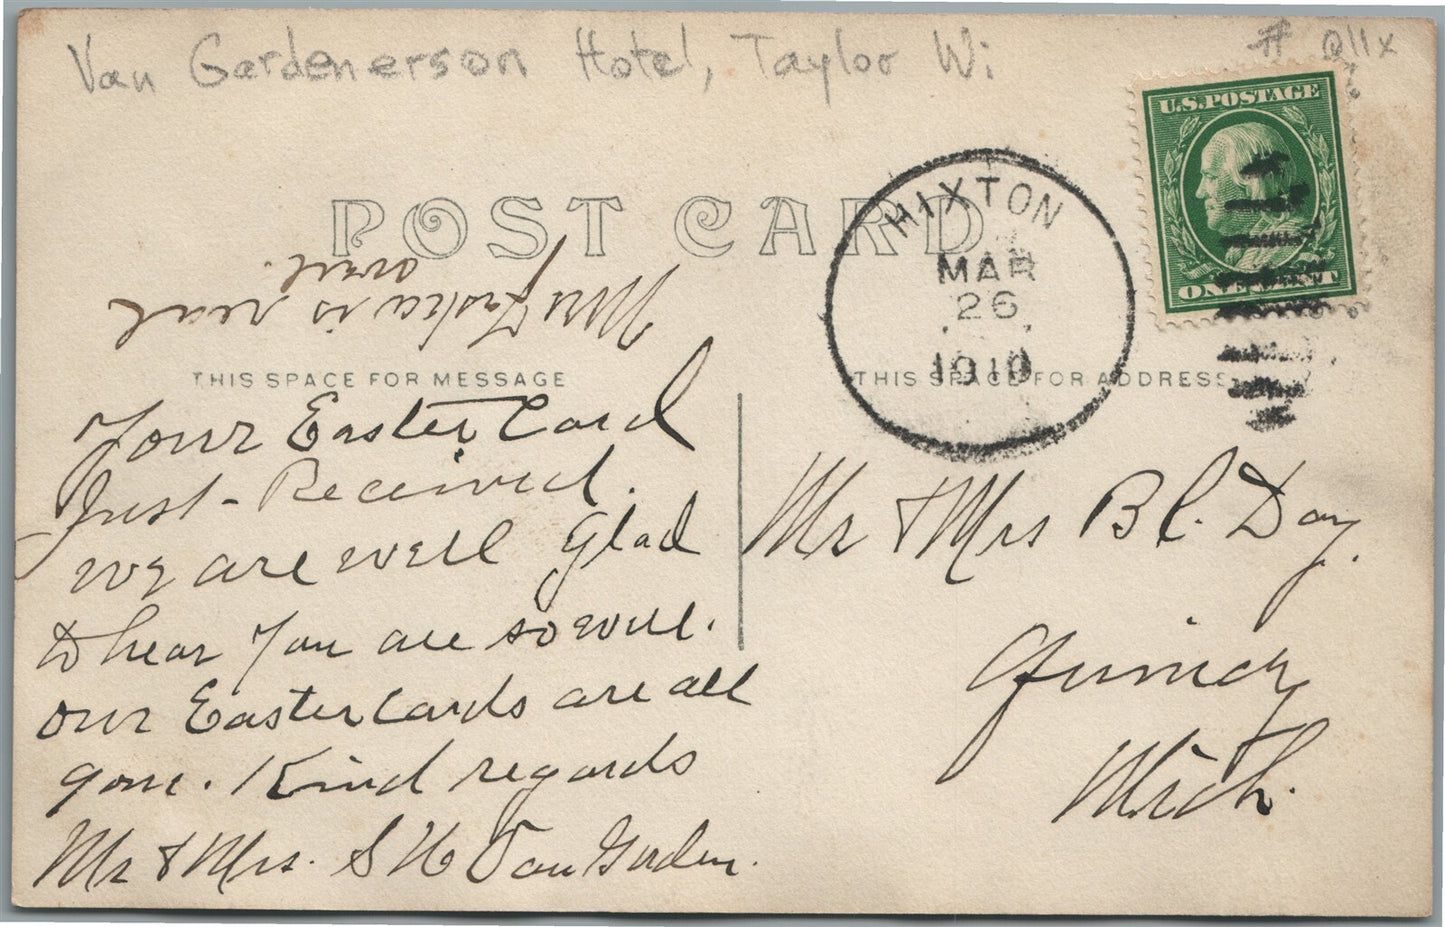 Van Gardenerson Hotel, Taylor Wi
#
U.S. POSTAGE
ONE CENT
POST CARD
HIXTON
MAR
26
1910
Mrs is real
over.
THIS SPACE FOR MESSAGE
THIS SPACE FOR ADDRESS
Your Easter Card
Just - Received.
we are well Glad
to hear You are so well.
our Easter Cards are all
gone. Kind regards
Mr & Mrs. S H Van Gorden.
Mr & Mrs B C. Day.
Quincy
Mich.